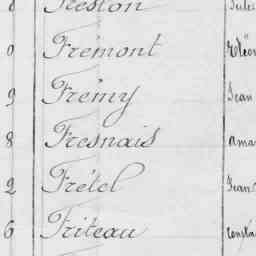 8 Freston Jules
0 Frémont Eléon
9 Frémy Jean
8 Fresnais ama
2 Frétel Jean
6 Friteau consta